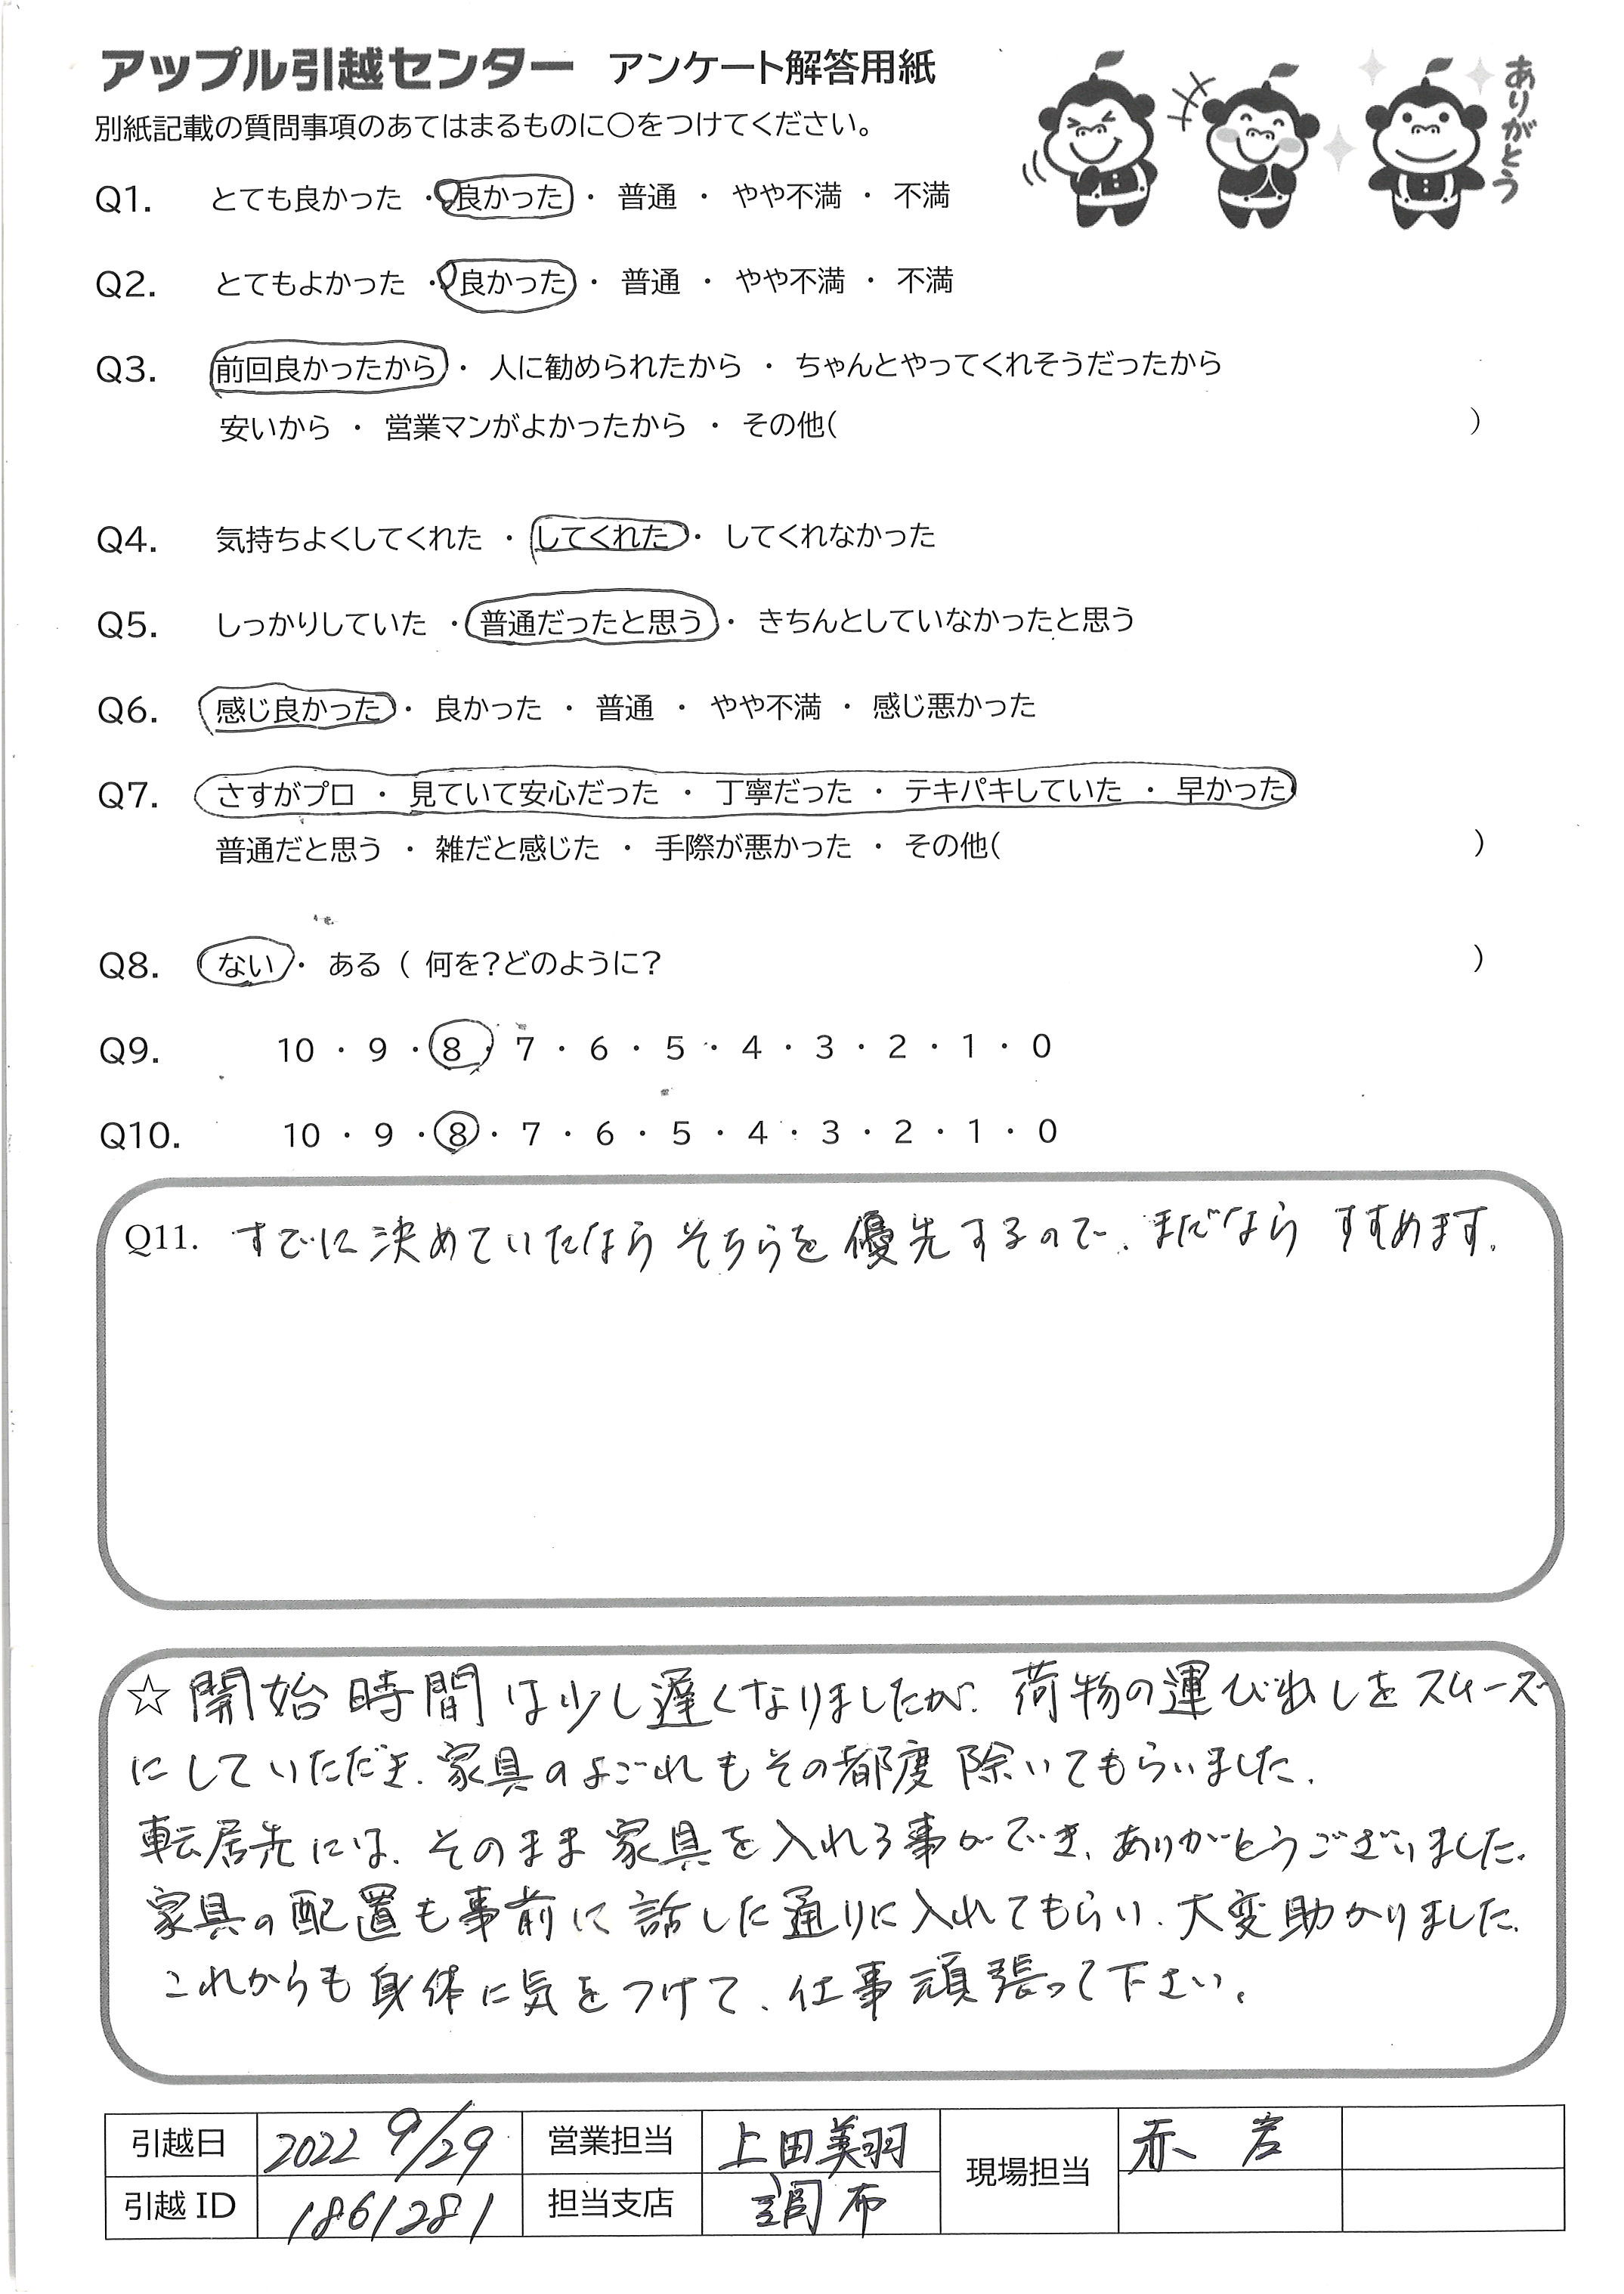 アップル引越センター アンケート解答用紙
ありがとう
別紙記載の質問事項のあてはまるものに○をつけてください。
Q1. とても良かった ・ 良かった ・ 普通 ・ やや不満 ・ 不満
Q2. とてもよかった ・ 良かった ・ 普通 ・ やや不満 ・ 不満
Q3. 前回良かったから ・ 人に勧められたから ・ ちゃんとやってくれそうだったから
安いから ・ 営業マンがよかったから ・ その他( )
Q4. 気持ちよくしてくれた ・ してくれた ・ してくれなかった
Q5. しっかりしていた ・ 普通だったと思う ・ きちんとしていなかったと思う
Q6. 感じ良かった ・ 良かった ・ 普通 ・ やや不満 ・ 感じ悪かった
Q7. さすがプロ ・ 見ていて安心だった ・ 丁寧だった ・ テキパキしていた ・ 早かった
普通だと思う ・ 雑だと感じた ・ 手際が悪かった ・ その他( )
Q8. ない ・ ある ( 何を?どのように? )
Q9. 10 ・ 9 ・ 8 ・ 7 ・ 6 ・ 5 ・ 4 ・ 3 ・ 2 ・ 1 ・ 0
Q10. 10 ・ 9 ・ 8 ・ 7 ・ 6 ・ 5 ・ 4 ・ 3 ・ 2 ・ 1 ・ 0
Q11. すでに決めていたならそちらを優先するので、まだなら すすめます。
☆ 開始時間は少し遅くなりましたが、荷物の運び出しをスムーズ
にしていただき、家具のよごれもその都度除いてもらいました。
転居先には、そのまま家具を入れる事ができ、ありがとうございました。
家具の配置も事前に話した通りに入れてもらい、大変助かりました。
これからも身体に気をつけて、仕事頑張って下さい。
引越日 2022 9/29 営業担当 上田美羽 現場担当 赤岩
引越ID 1861281 担当支店 調布